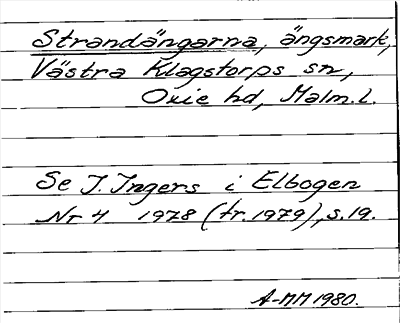 Strandängarna, ängsmark,
Västra Klagstorps sn,
Oxie hd, Malm.l.
Se J. Ingers i Elbogen
Nr 4 1978 (tr. 1979), s. 19.
A-MM 1980.